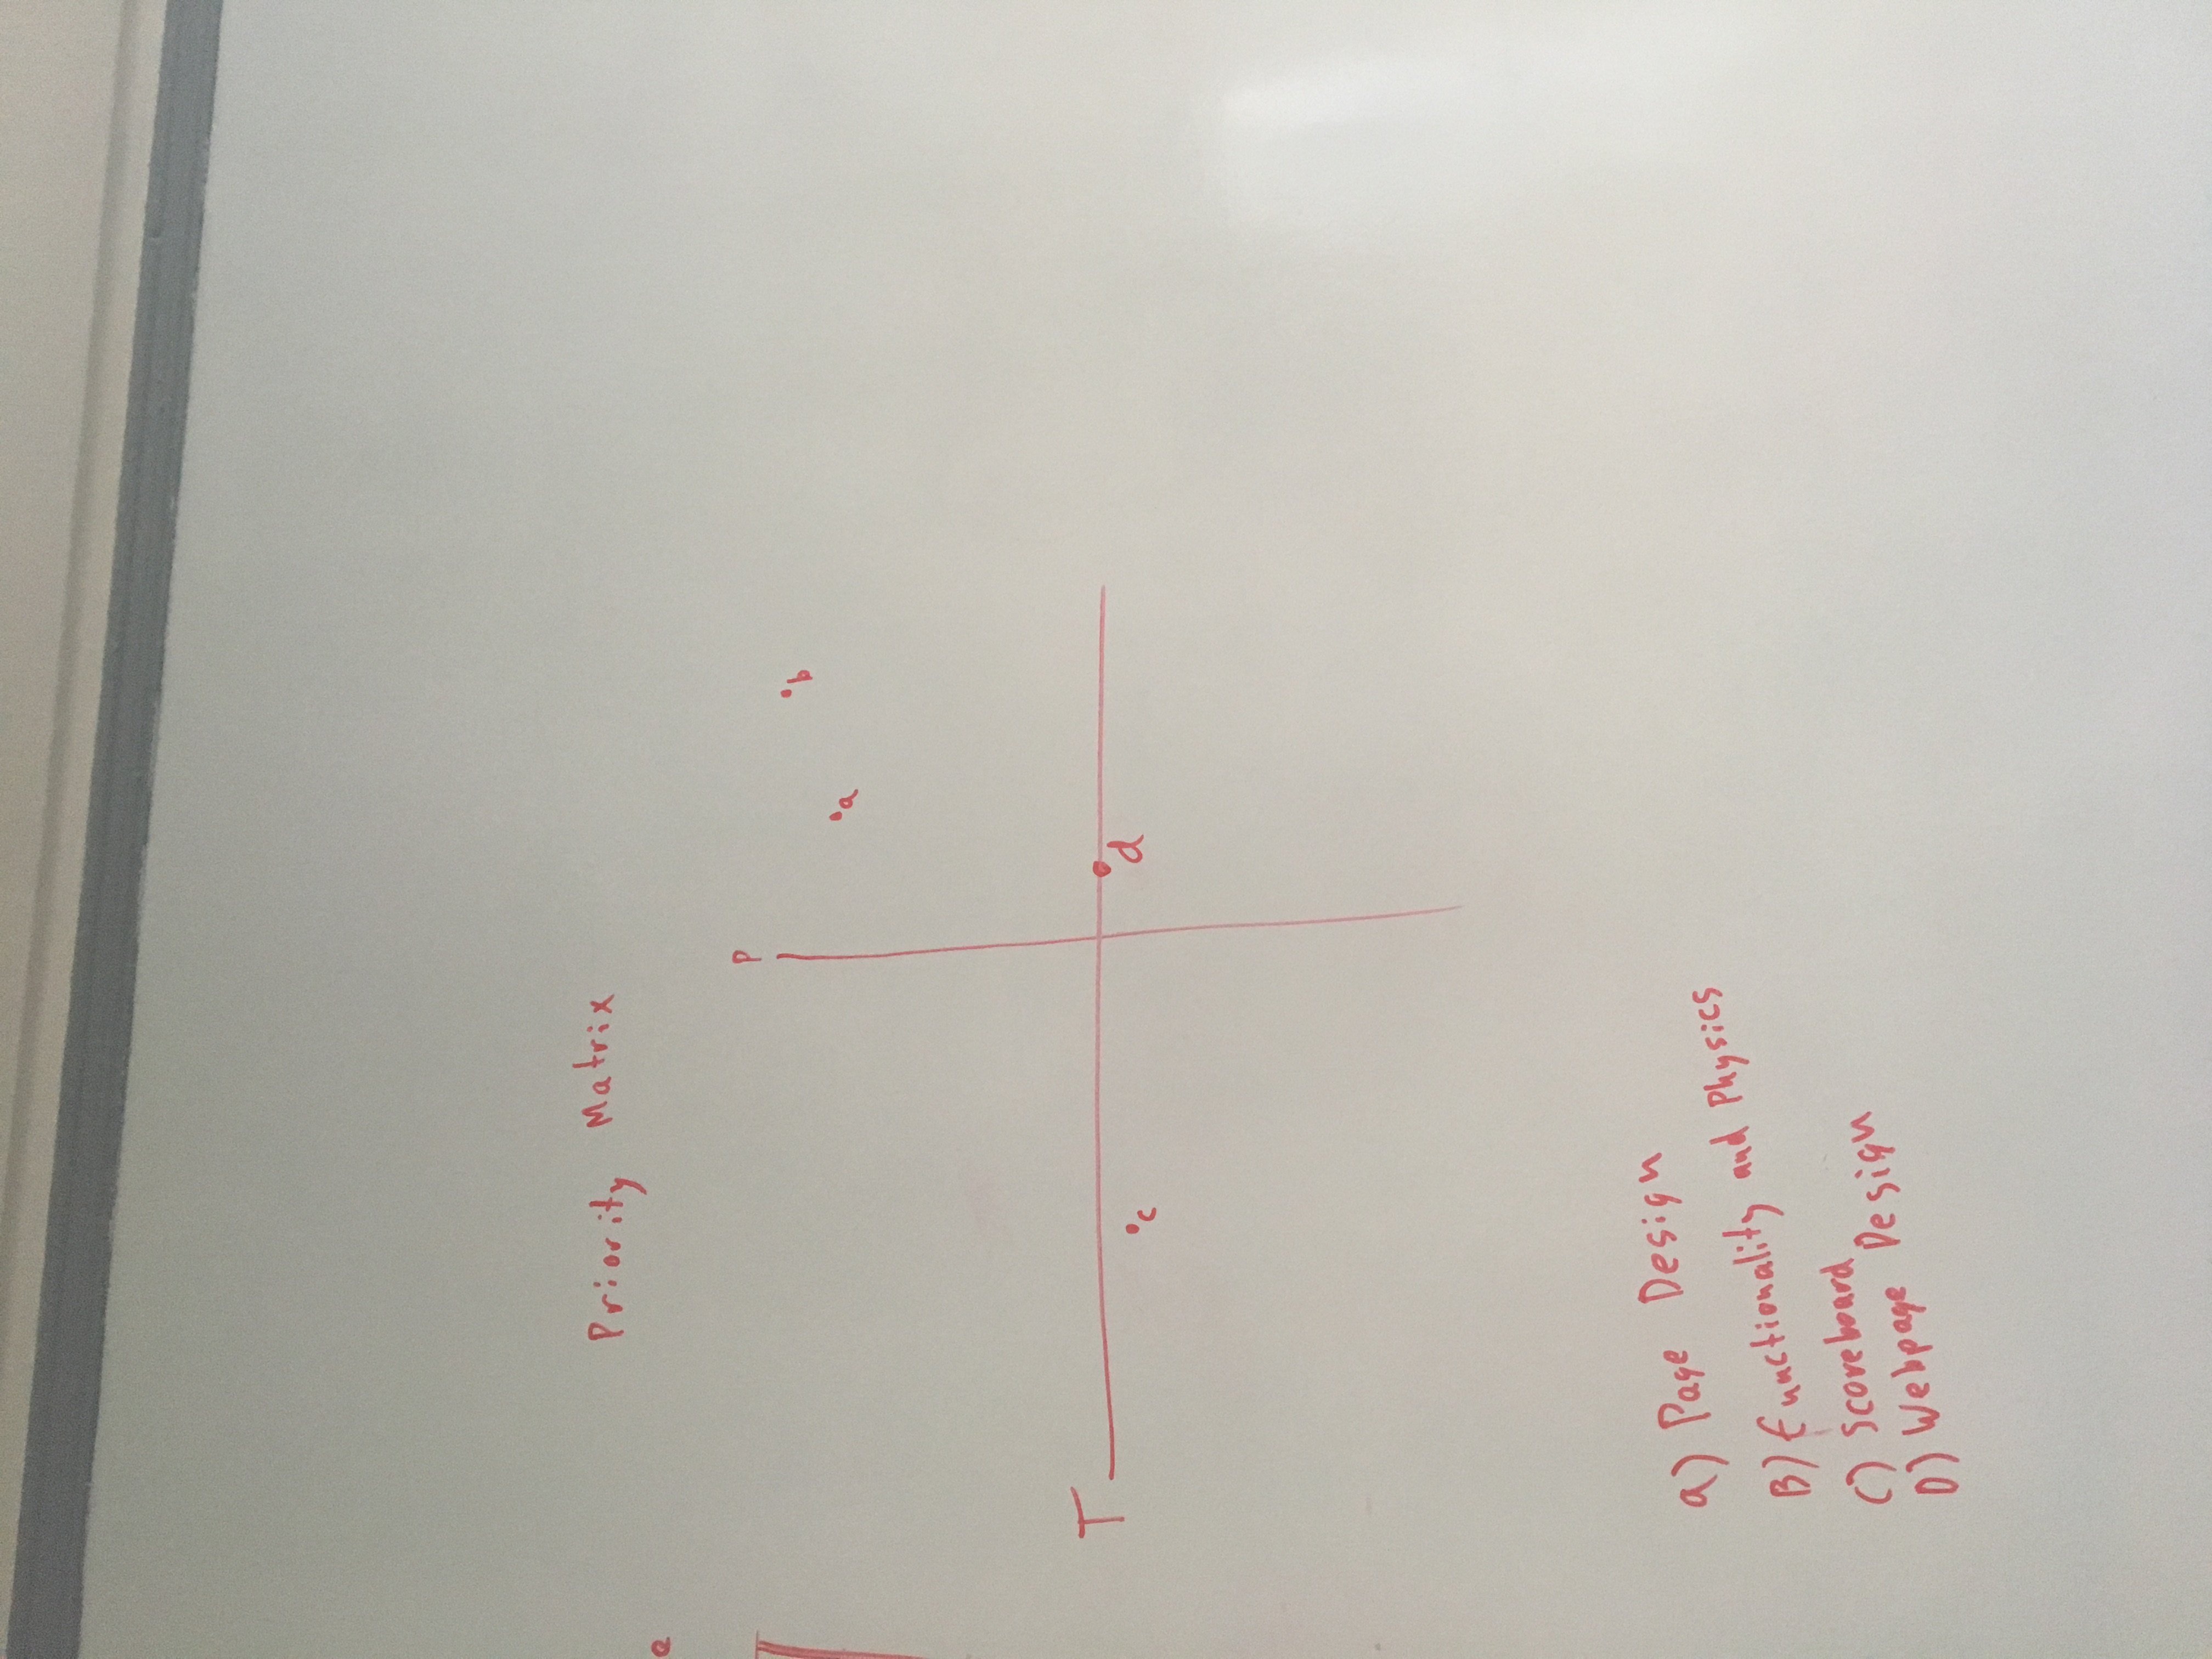 Priority Matrix
e
P
b
a
T
d
c
a) Page Design
B) functionality and Physics
C) Scoreboard
D) Webpage Design